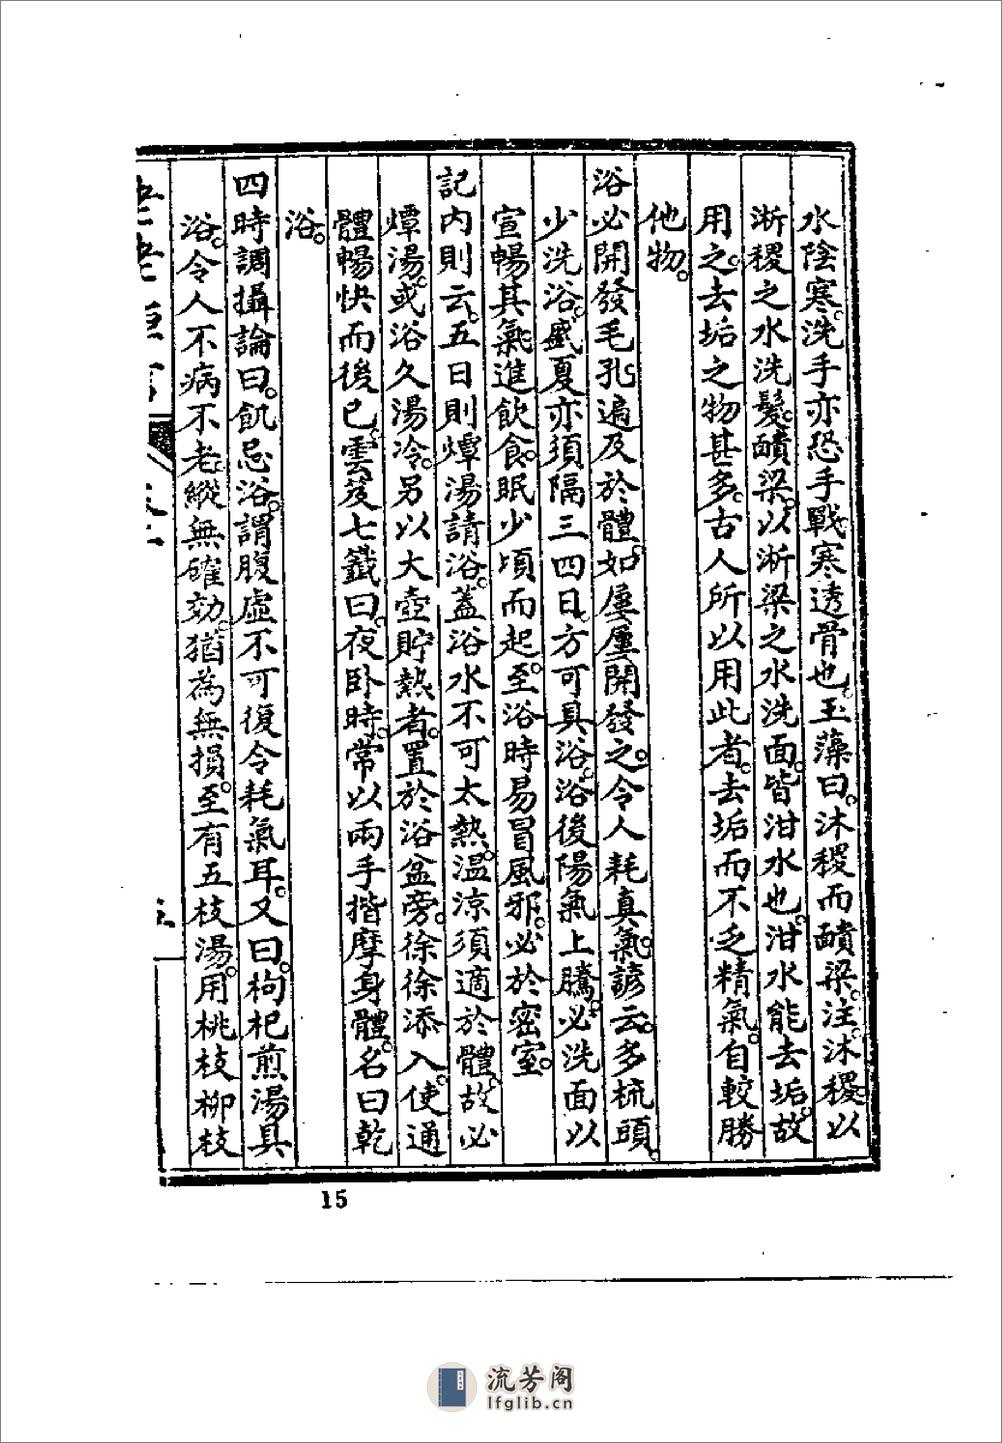 水陰寒。洗手亦恐手戰。寒透骨也。玉藻曰。沐稷而靧粱。注。沐稷以
淅稷之水洗髮。靧粱。以淅粱之水洗面。皆泔水也。泔水能去垢。故
用之。去垢之物甚多。古人所以用此者。去垢而不乏精氣。自較勝
他物。
浴必開發毛孔。遍及於體。如屢屢開發之。令人耗真氣。諺云。多梳頭。
少洗浴。盛夏亦須隔三四日。方可具浴。浴後陽氣上騰。必洗面以
宣暢其氣。進飲食。眠少頃而起。至浴時易冒風邪。必於密室。
記內則云。五日則燂湯請浴。蓋浴水不可太熱。溫涼須適於體。故必
燂湯。或浴久湯冷。另以大壺貯熱者。置於浴盆旁。徐徐添入。使通
體暢快而後已。雲笈七籤曰。夜卧時。常以兩手揩摩身體。名曰乾
浴。
四時調攝論曰。飢忌浴。謂腹虛不可復令耗氣耳。又曰。枸杞煎湯具
浴。令人不病不老。縱無確効。猶為無損。至有五枝湯。用桃枝柳枝
15
流芳阁
lfglib.cn